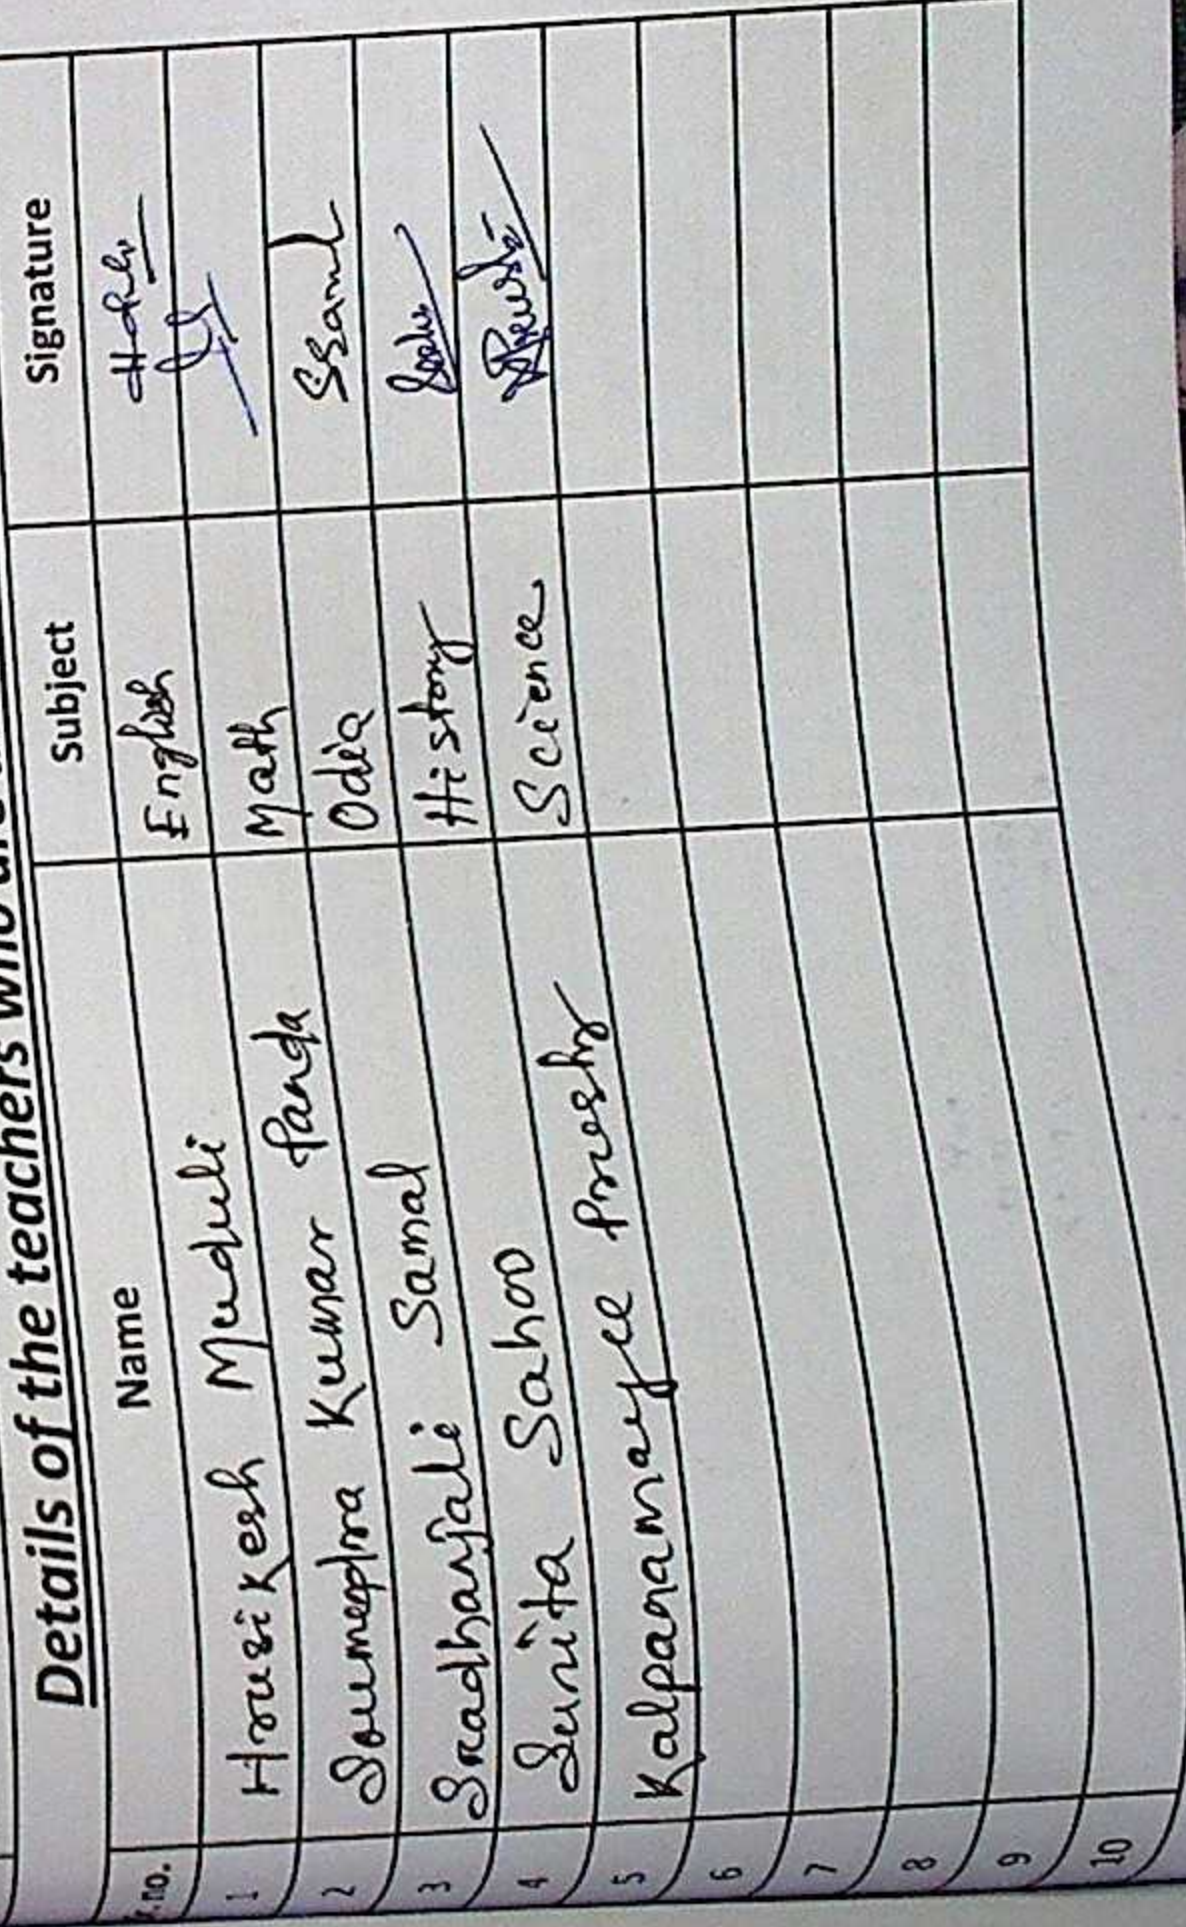 Details of the teachers who
Sr.no. Name Subject Signature
1 Hrusikesh Muduli English
2 Soumendra Kumar Panda Math
3 Sradhanjali Samal Odia SSamal
4 Sunita Sahoo History Sahoo
5 Kalpanamayee Prusty Science
6
7
8
9
10